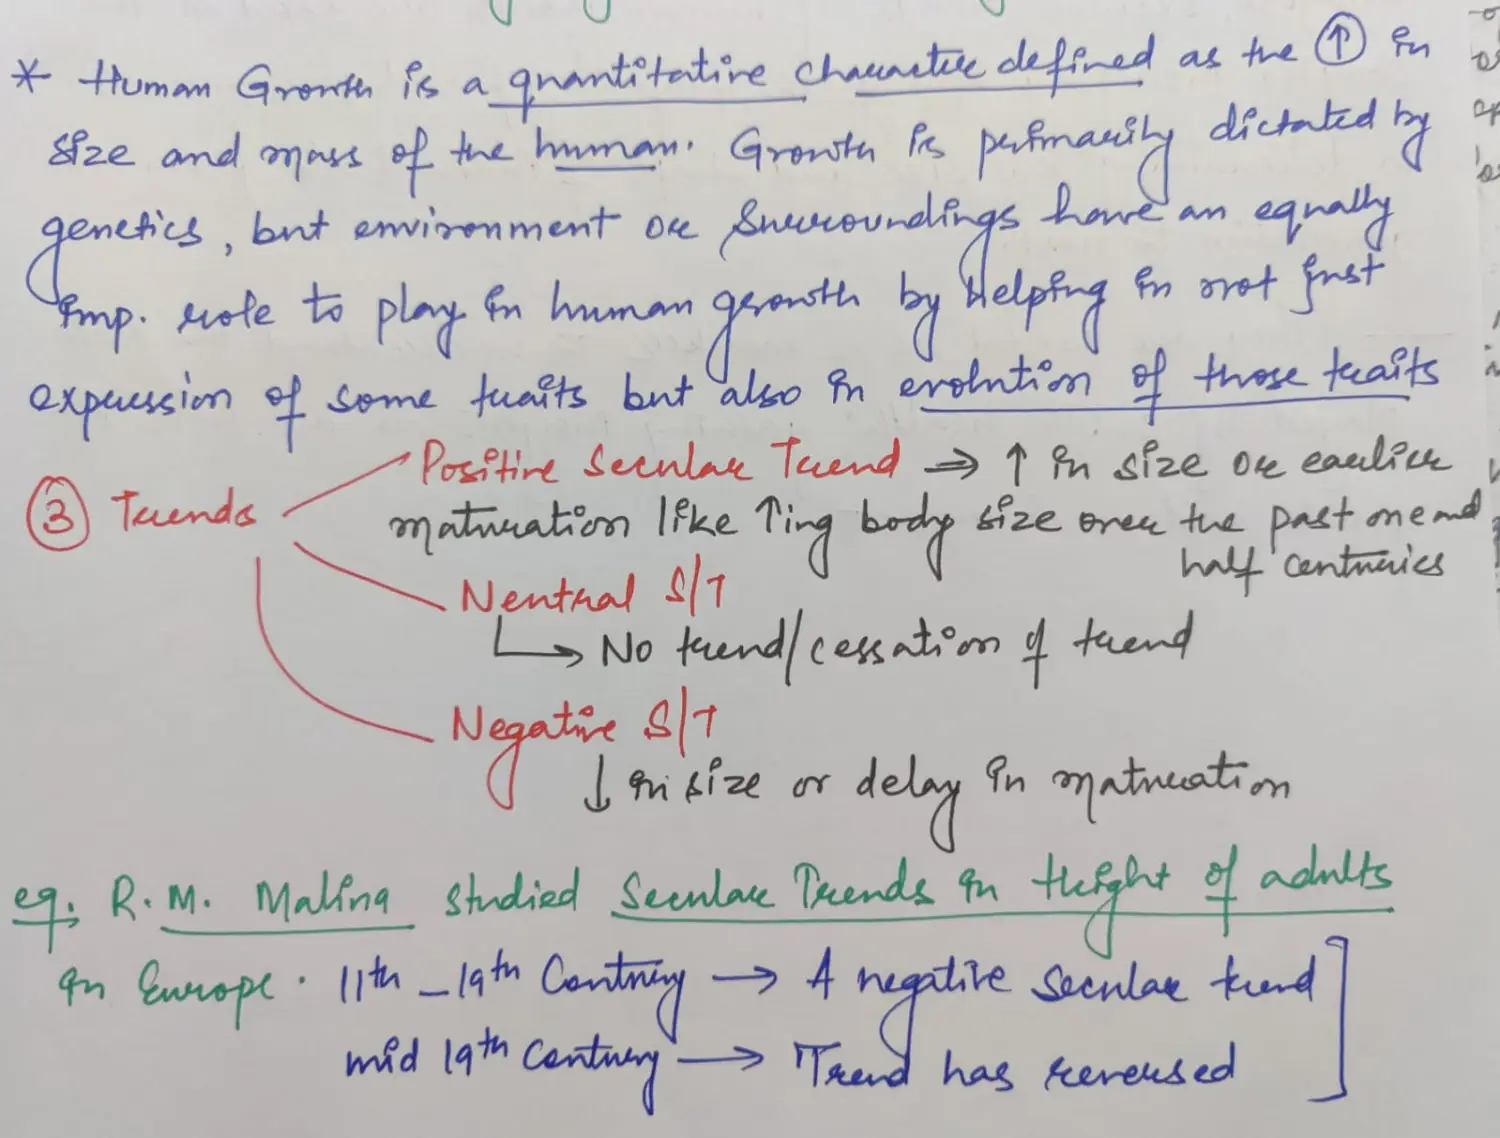 * Human Growth is a quantitative character defined as the ↑ in
size and mass of the human. Growth is primarily dictated by
genetics, but environment or surroundings have an equally
imp. role to play in human growth by helping in not just
expression of some traits but also in evolution of those traits
③ Trends
Positive Secular Trend ⇒ ↑ in size or earlier
maturation like ↑ing body size over the past one and
half centuries
Neutral S/T
↳ No trend/cessation of trend
Negative S/T
↓ in size or delay in maturation
eg. R.M. Malina studied Secular Trends in Height of adults
in Europe. 11th – 19th Century → A negative secular trend
mid 19th Century → Trend has reversed